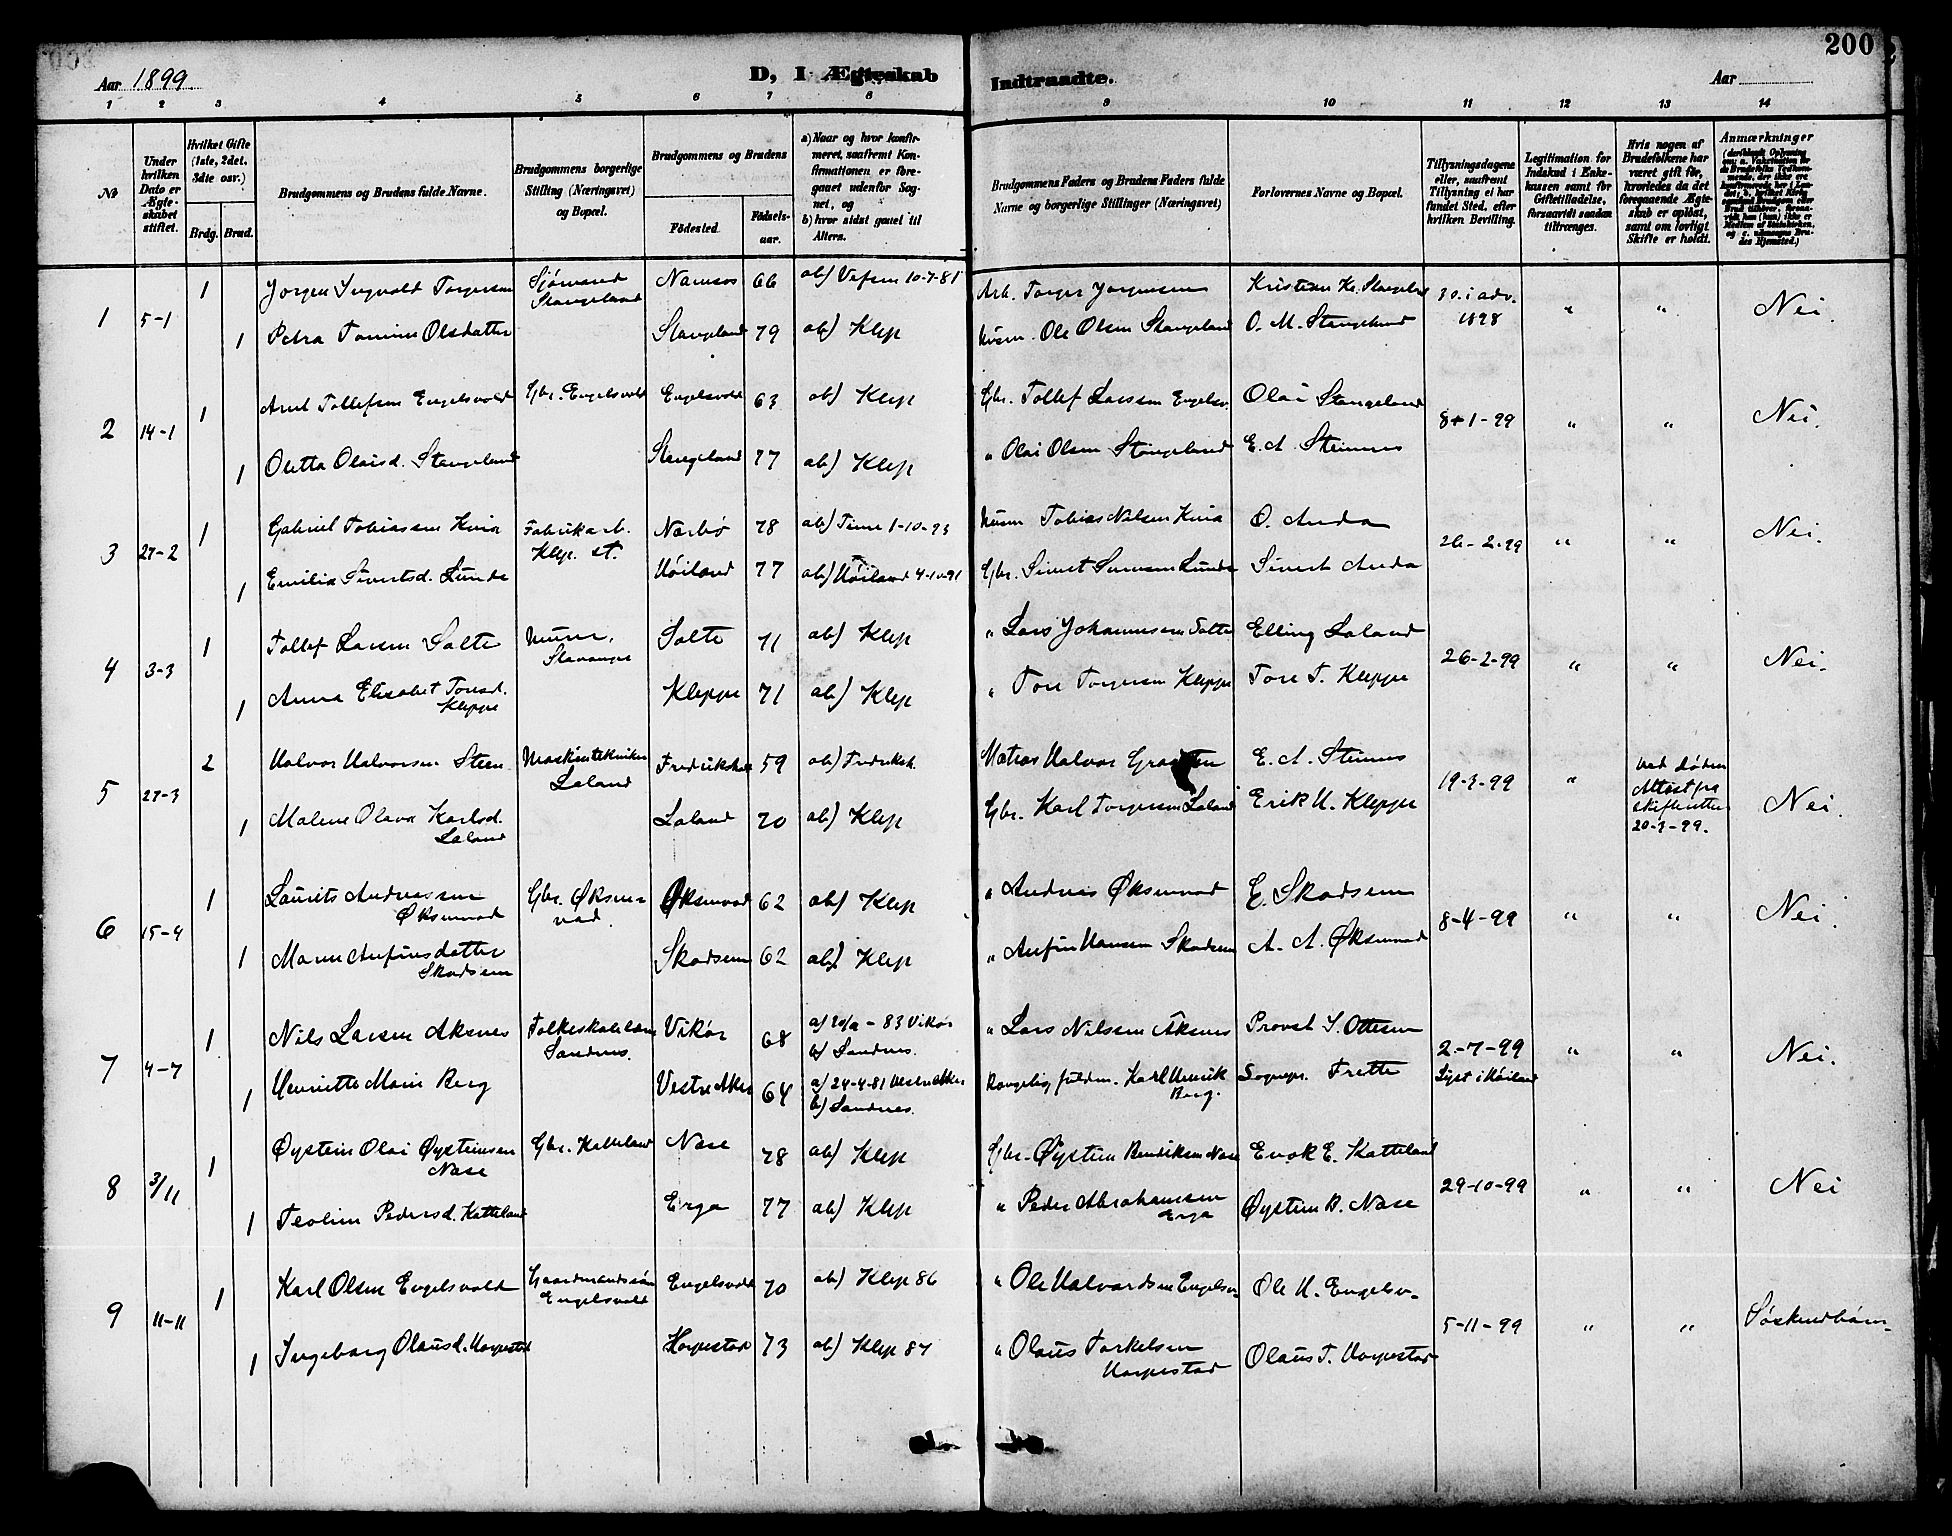 200
Aar 1899. D, I Ægteskab Indtraadte. Aar
1 2 3 4 5 6 7 8 9 10 11 12 13 14
No
Under hvilken Dato er Ægteskabet stiftet.
Hvilket Gifte (1ste, 2det, 3die osv.)
Brdg. Brud.
Brudgommens og Brudens fulde Navne.
Brudgommens borgerlige Stilling (Næringsvei) og Bopæl.
Brudgommens og Brudens
Födested. Födsels-aar.
a) Naar og hvor konfirmeret, saafremt Konfirmationen er foregaaet udenfor Sognet, og
b) hvor sidst gaaet til Alters.
Brudgommens Faders og Brudens Faders fulde Navne og borgerlige Stillinger (Næringsvei)
Forlovernes Navne og Bopæl.
Tillysningsdagene eller, saafremt Tillysning ei har fundet Sted, efter hvilken Bevilling.
Legitimation for Indskud i Enkekassen samt for Giftetilladelse, forsaavidt saadan tiltrænges.
Hvis nogen af Brudefolkene har været gift før, hvorledes da det foregaaende Ægteskab er opløst, samt om lovligt Skifte er holdt.
Anmærkninger
1 5-1 1 Jørgen Ingvald Torgersen Sjømand Stangeland Namsos 66 ab) Vefsen 10-7-81 Arb. Torger Jørgensen Kristian Kr. Stangeland 3 s. i adv. 1898 " " Nei.
1 Petra Tomine Olsdatter Stangeland 79 ab) Klep Husm. Ole Olsen Stangeland O. M. Stangeland
2 14-1 1 Arnt Tollefsen Engelsvold Gbr. Engelsvold Engelsvold 63 ab) Klep Gbr. Tollef Larssen Engelsv. Olai Stangeland 8-1-99 " " Nei.
1 Oletta Olaisd. Stangeland Stangeland 77 ab) Klep " Olai Olsen Stangeland E. A. Steinnes
3 27-2 1 Gabriel Tobiassen Kvia Fabrikarb. Klep. st. Nærbø 78 ab) Time 1-10-93 Husm Tobias Nilsen Kvia O. Anda 26-2-99 " " Nei.
1 Emilia Sivertsd. Lunde Høiland 77 ab) Høiland 4-10-91 Gbr. Sivert Lunde Sivert Anda
4 3-3 1 Tollef Larsen Salte Murer, Stavanger Salte 71 ab) Klep " Lars Johannessen Salte Elling Laland 26-2-99 " " Nei.
1 Anna Elisabet Torsd. Kleppe Kleppe 71 ab) Klep " Tore Torgersen Kleppe Tore T. Kleppe
5 27-3 2 Halvor Halvorsen Steen Maskintekniker Laland Fredrikshald 59 ab) Fredriksh. Matros Halvor E. A. Steinnes 19-3-99 " Ved døden Attest fra skifteretten 20-3-99. Nei.
1 Malene Olava Karlsd. Laland Laland 70 ab) Klep Gbr. Karl Torgersen Laland Erik H. Kleppe
6 15-4 1 Laurits Andreassen Øksnevad Gbr. Øksnevad Øksnevad 62 ab) Klep " Andreas Øksnevad E. Skadsem 8-4-99 " " Nei.
1 Maren Anfinsdatter Skadsem Skadsem 62 ab) Klep " Anfin Hansen Skadsem A. A. Øksnevad
7 4-7 1 Nils Larsen Aksnes Folkeskolelærer Sandnes. Vikør 68 a) 83 Vikør b) Sandnes. " Lars Nilssen Aksnes Provst S. Ottesen 2-7-99 Lyst i Høiland " " Nei.
1 Henriette Marie Berg Vestre Aker 64 a) 24-4-81 Vestre Aker b) Sandnes. Karl Henrik Berg. Sognepr. Frette
8 3/11 1 Øystein Olai Øysteinsen Nase Gbr. Katteland Nase 78 ab) Klep Gbr. Øystein Bendiksen Nase Enok E. Katteland 29-10-99 " " Nei
1 Teoline Pedersd. Katteland Erga 77 ab) Klep " Peder Abrahamsen Erga Øystein B. Nase
9 11-11 1 Karl Olsen Engelsvold Gaardmandssøn Engelsvold Engelsvold 70 ab) Klep 86 " Ole Halvardsen Engelsv. Ole H. Engelsv. 5-11-99 " " Søskendbørn
1 Ingeborg Olausd. Horpestad Horpestad 73 ab) Klep 87 " Olaus Torkelsen Horpestad Olaus T. Horpestad